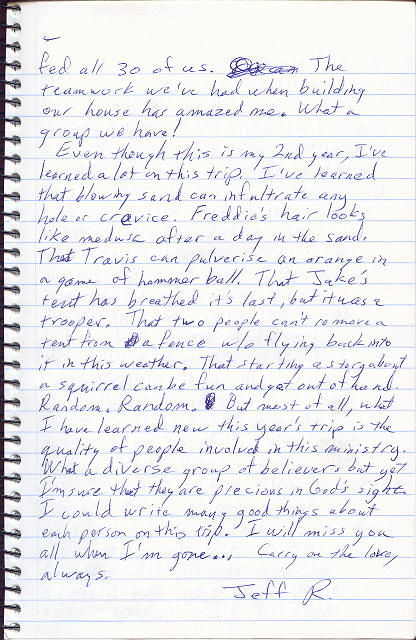 fed all 30 of us. The
teamwork we've had when building
our house has amazed me. What a
group we have!
Even though this is my 2nd year, I've
learned a lot on this trip. I've learned
that blowing sand can infultrate any
hole or crevice. Freddie's hair looks
like medusa after a day in the sand.
That Travis can pulverise an orange in
a game of hammer ball. That Jake's
tent has breathed it's last, but it was a
trooper. That two people can't remove a
tent from a fence w/o flying back into
it in this weather. That starting a story about
a squirrel can be fun and get out of hand.
Random. Random. But most of all, what
I have learned new this year's trip is the
quality of people involved in this ministry.
What a diverse group of believers but yet
I'm sure that they are precious in God's sight.
I could write many good things about
each person on this trip. I will miss you
all when I'm gone... Carry on the love,
always.
Jeff R.